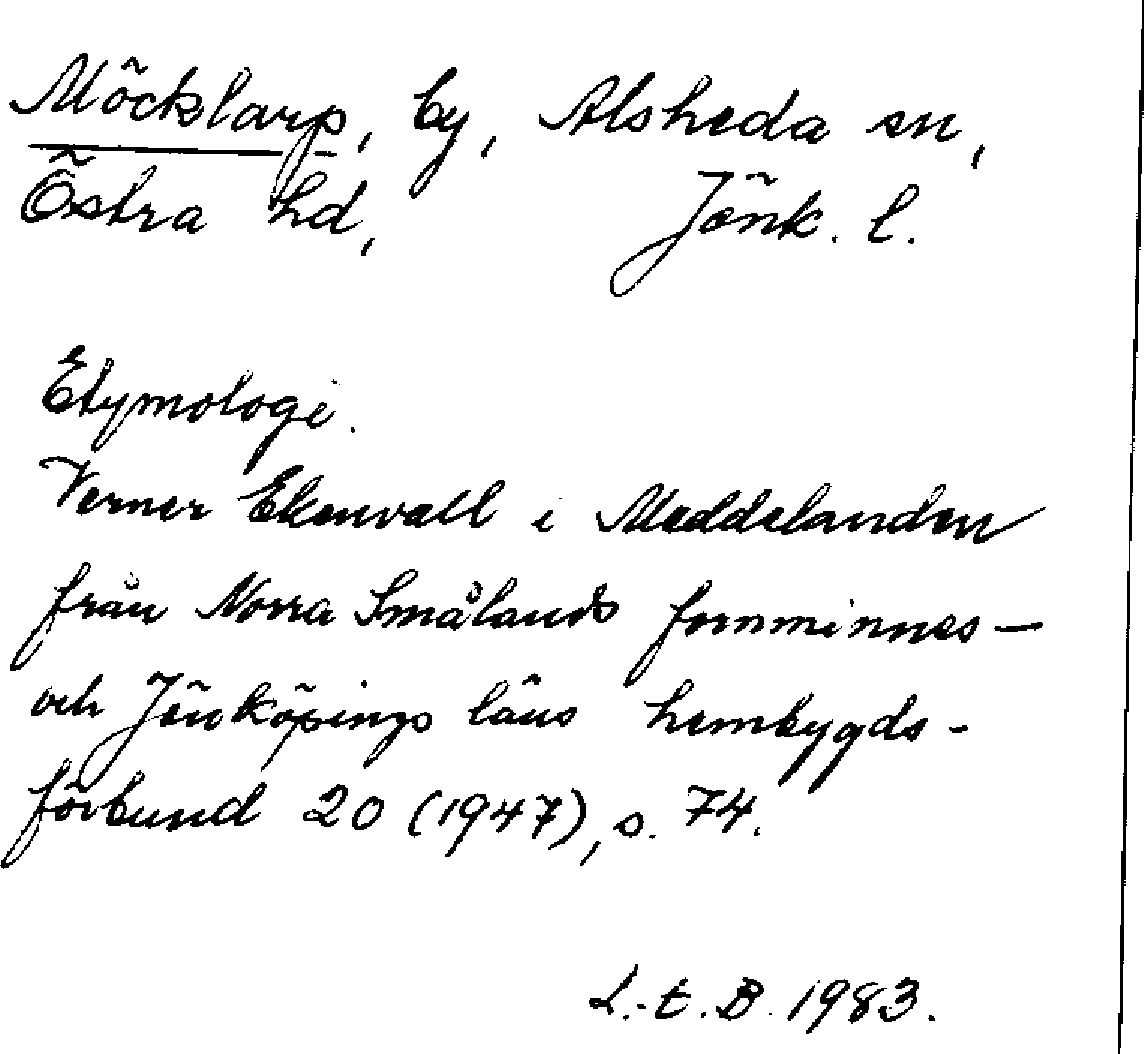 Möcklarp, by, Alsheda sn,
Östra hd, Jönk. l.
Etymologi.
Verner Ekenvall i Meddelanden
från Norra Smålands fornminnes-
och Jönköpings läns hembygds-
förbund 20 (1947), s. 74.
L.-E. B. 1983.